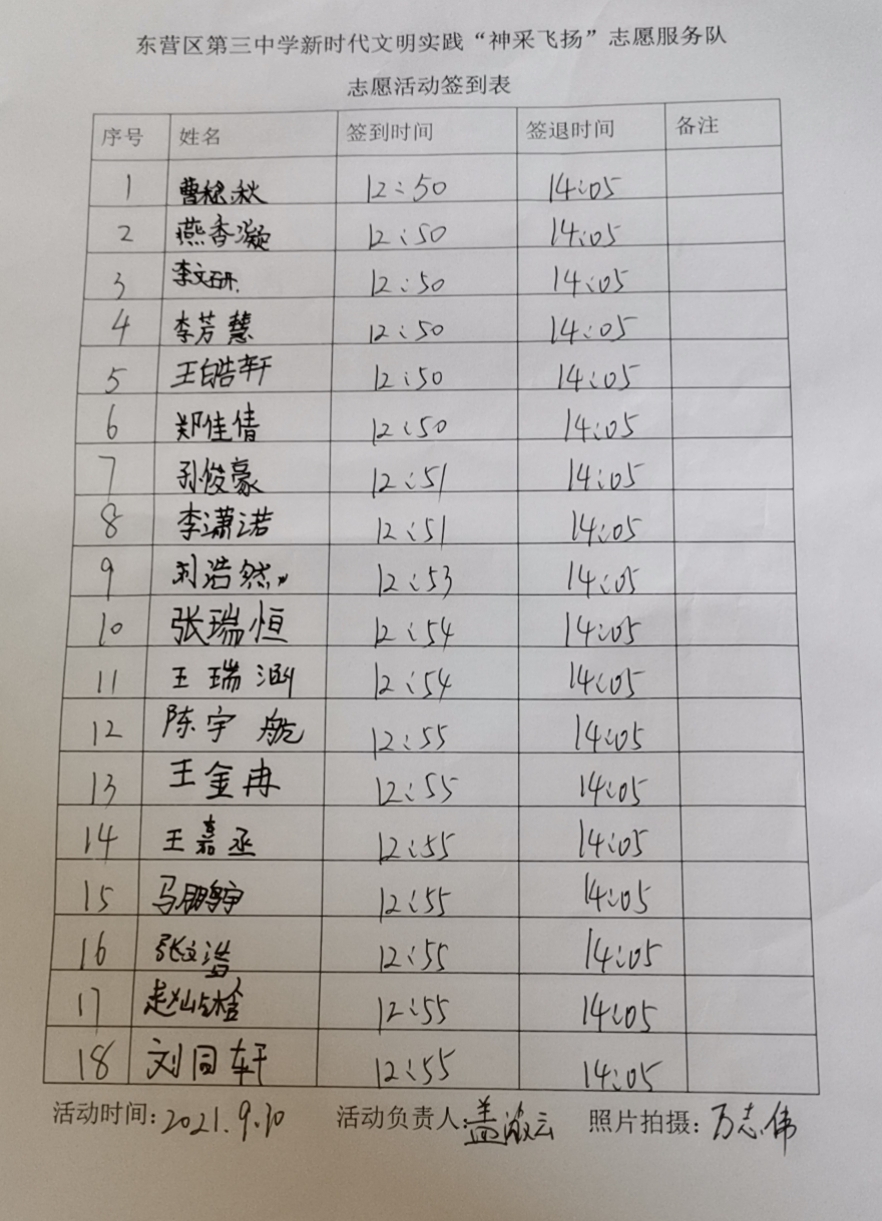 东营区第三中学新时代文明实践“神采飞扬”志愿服务队
志愿活动签到表
序号 姓名 签到时间 签退时间 备注
1 曹稔秋 12:50 14:05
2 燕香凝 12:50 14:05
3 李文研 12:50 14:05
4 李芳慧 12:50 14:05
5 王皓轩 12:50 14:05
6 郑佳倩 12:50 14:05
7 孙俊豪 12:51 14:05
8 李潇诺 12:51 14:05
9 刘浩然 12:53 14:05
10 张瑞恒 12:54 14:05
11 王瑞涵 12:54 14:05
12 陈宇航 12:55 14:05
13 王金冉 12:55 14:05
14 王嘉丞 12:55 14:05
15 马鹏宇 12:55 14:05
16 张文浩 12:55 14:05
17 12:55 14:05
18 刘同轩 12:55 14:05
活动时间:2021.9.30 活动负责人:盖淑云 照片拍摄:万志伟